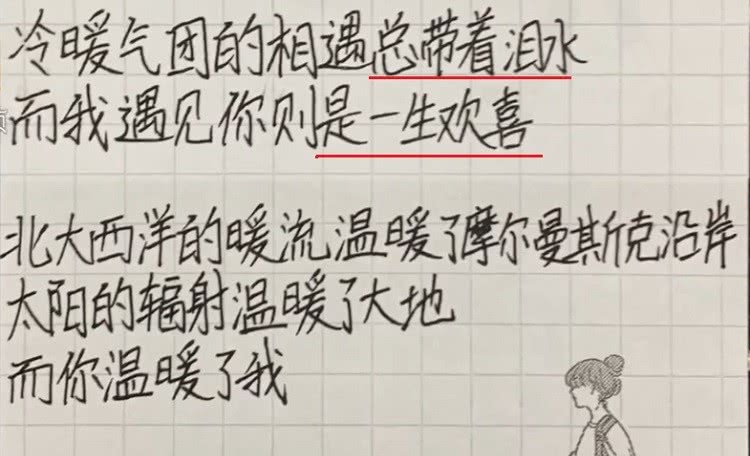 冷暖气团的相遇总带着泪水
而我遇见你则是一生欢喜
北大西洋的暖流温暖了摩尔曼斯克沿岸
太阳的辐射温暖了大地
而你温暖了我